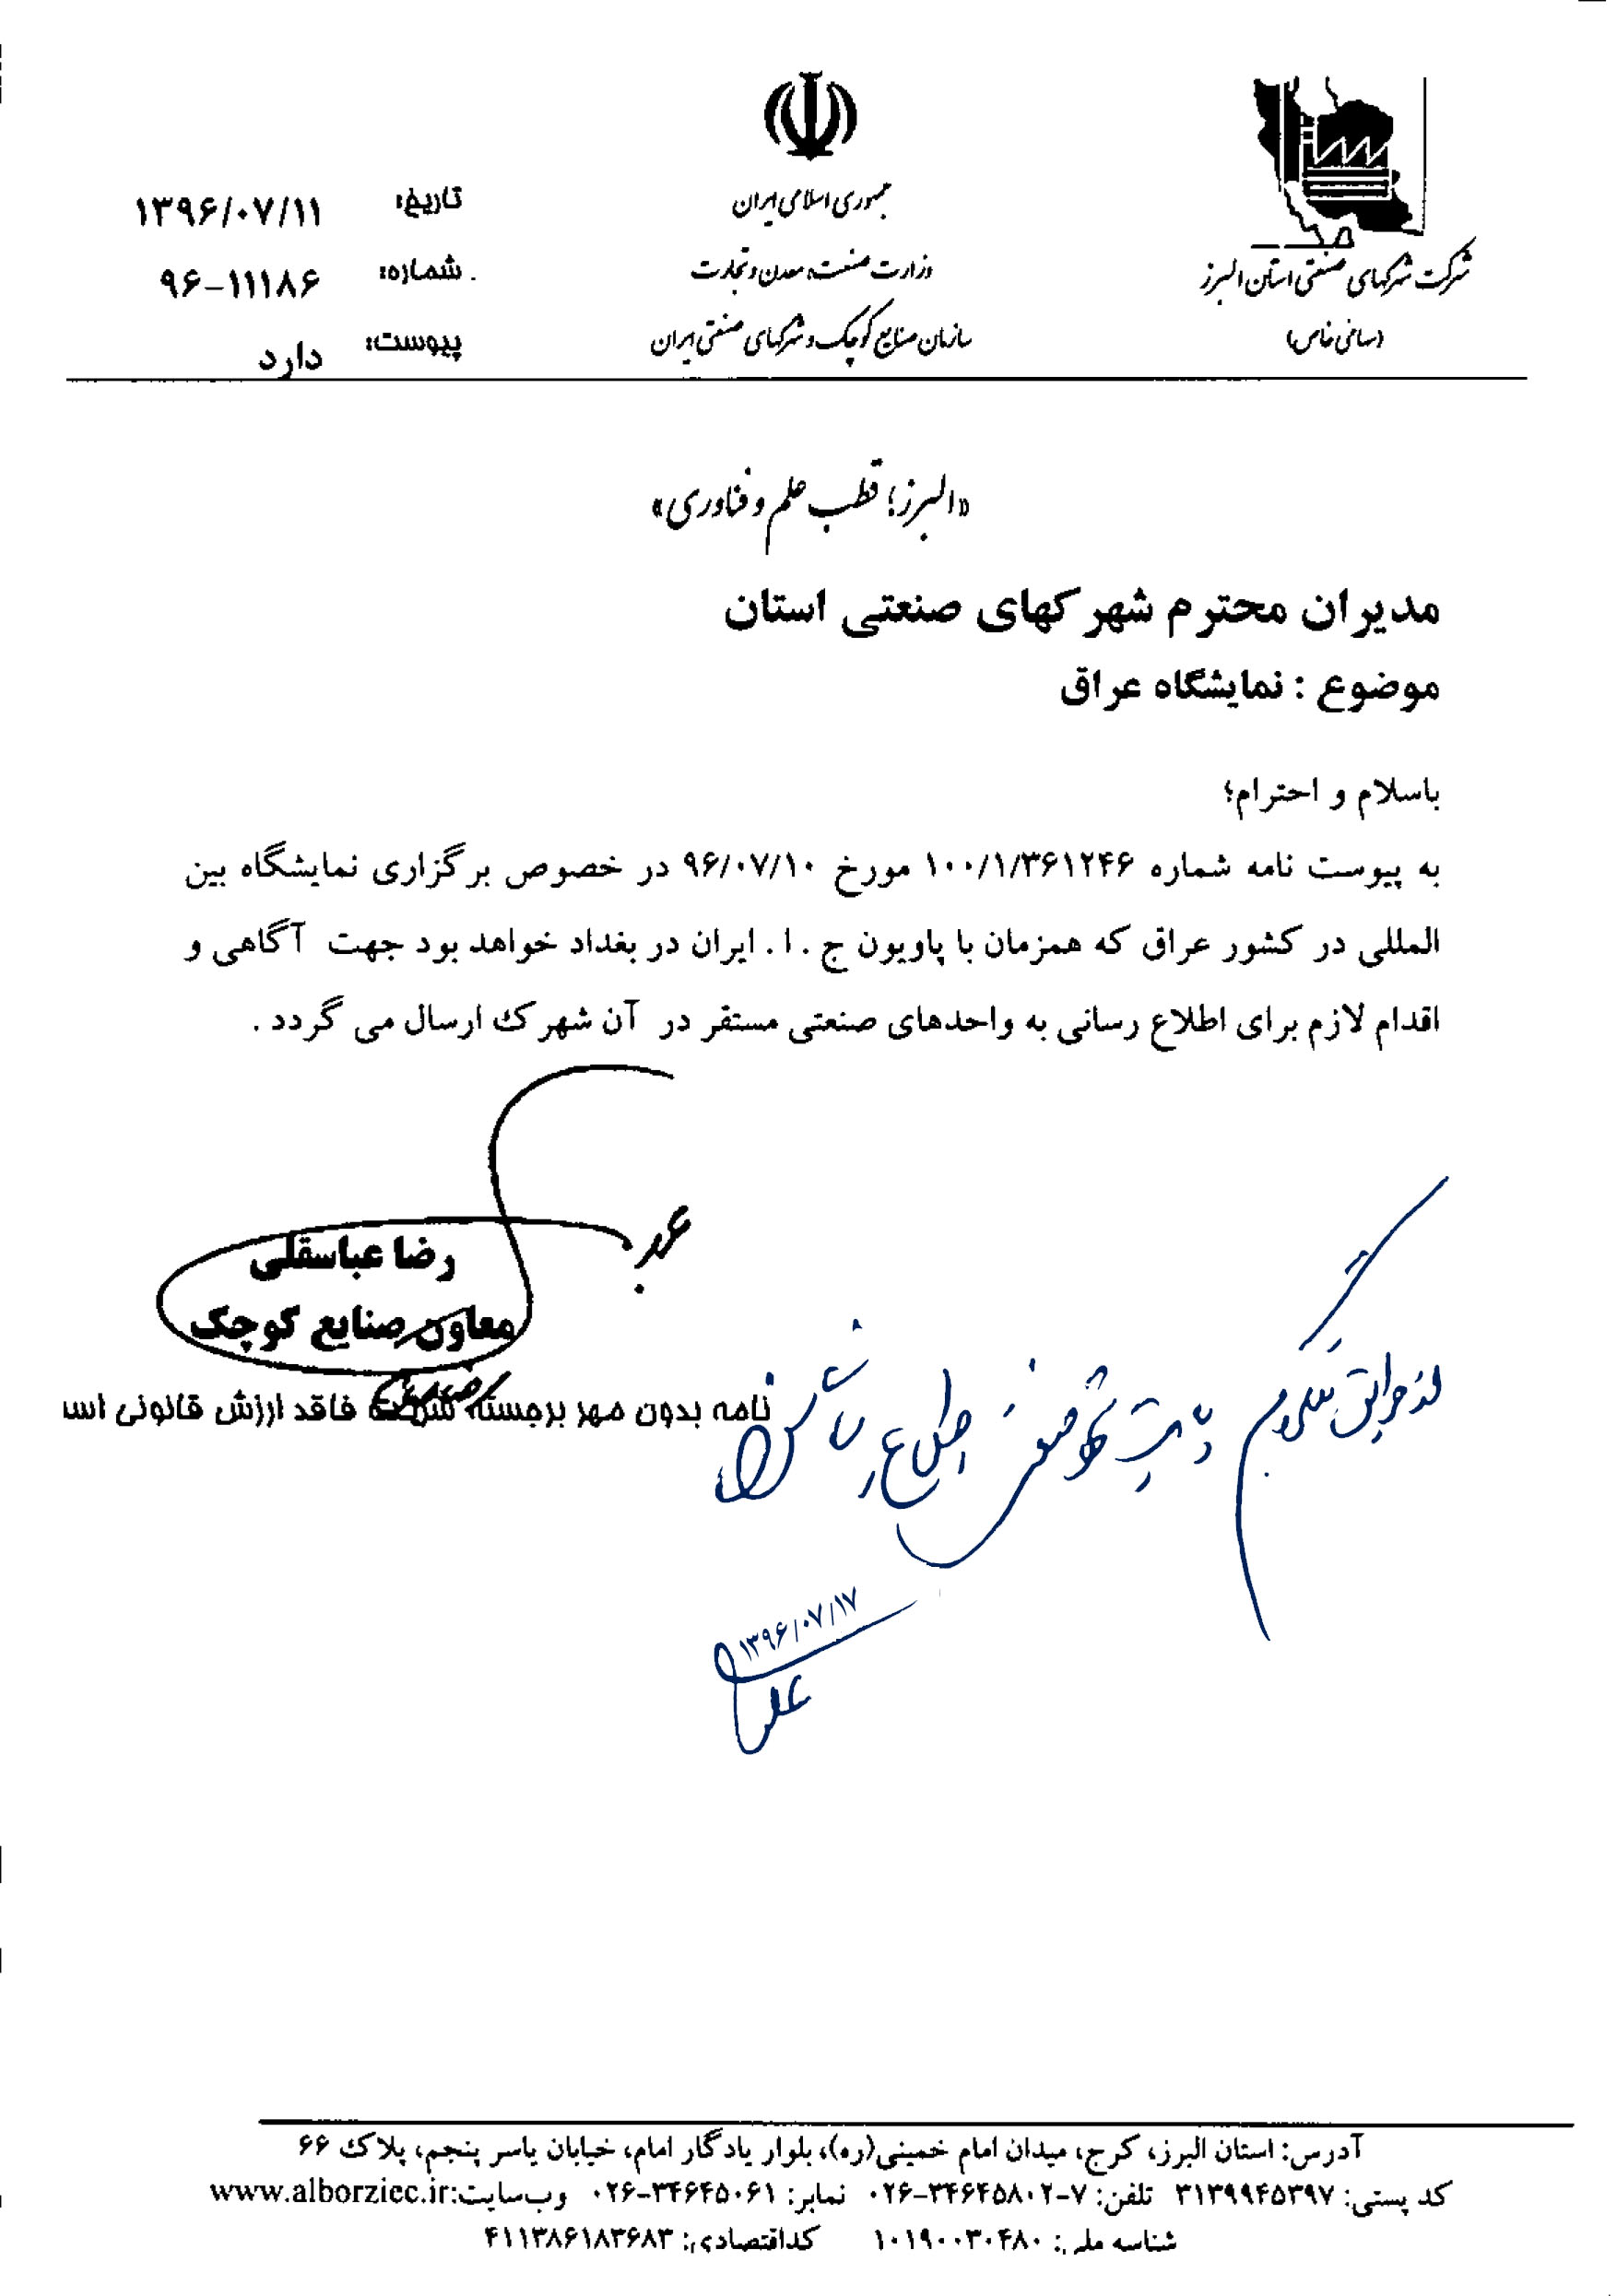 جمهوری اسلامی ایران
وزارت صنعت، معدن و تجارت
سازمان صنایع کوچک و شهرکهای صنعتی ایران
شرکت شهرکهای صنعتی استان البرز
(سهامی خاص)
تاریخ: ۱۳۹۶/۰۷/۱۱
شماره: ۹۶-۱۱۱۸۶
پیوست: دارد
«البرز؛ قطب علم و فناوری»
مدیران محترم شهرکهای صنعتی استان
موضوع : نمایشگاه عراق
باسلام و احترام؛
به پیوست نامه شماره ۱۰۰/۱/۳۶۱۲۴۶ مورخ ۹۶/۰۷/۱۰ در خصوص برگزاری نمایشگاه بین
المللی در کشور عراق که همزمان با پاویون ج . ا . ایران در بغداد خواهد بود جهت آگاهی و
اقدام لازم برای اطلاع رسانی به واحدهای صنعتی مستقر در آن شهرک ارسال می گردد .
رضا عباسقلی
معاون صنایع کوچک
نامه بدون مهر برجسته شرکت فاقد ارزش قانونی اس
از طریق تلگرام
اطلاع رسانی شود
۱۳۹۶/۰۷/۱۷
آدرس: استان البرز، کرج، میدان امام خمینی(ره)، بلوار یادگار امام، خیابان یاسر پنجم، پلاک ۶۶
کد پستی: ۳۱۳۹۹۴۵۳۹۷ تلفن: ۷-۰۲۶-۳۴۶۴۵۸۰۲ نمابر: ۰۲۶-۳۴۶۴۵۰۶۱ وب‌سایت:www.alborziec.ir
شناسه ملی: ۱۰۱۹۰۰۳۰۴۸۰ کداقتصادی: ۴۱۱۳۸۶۱۸۳۶۸۳